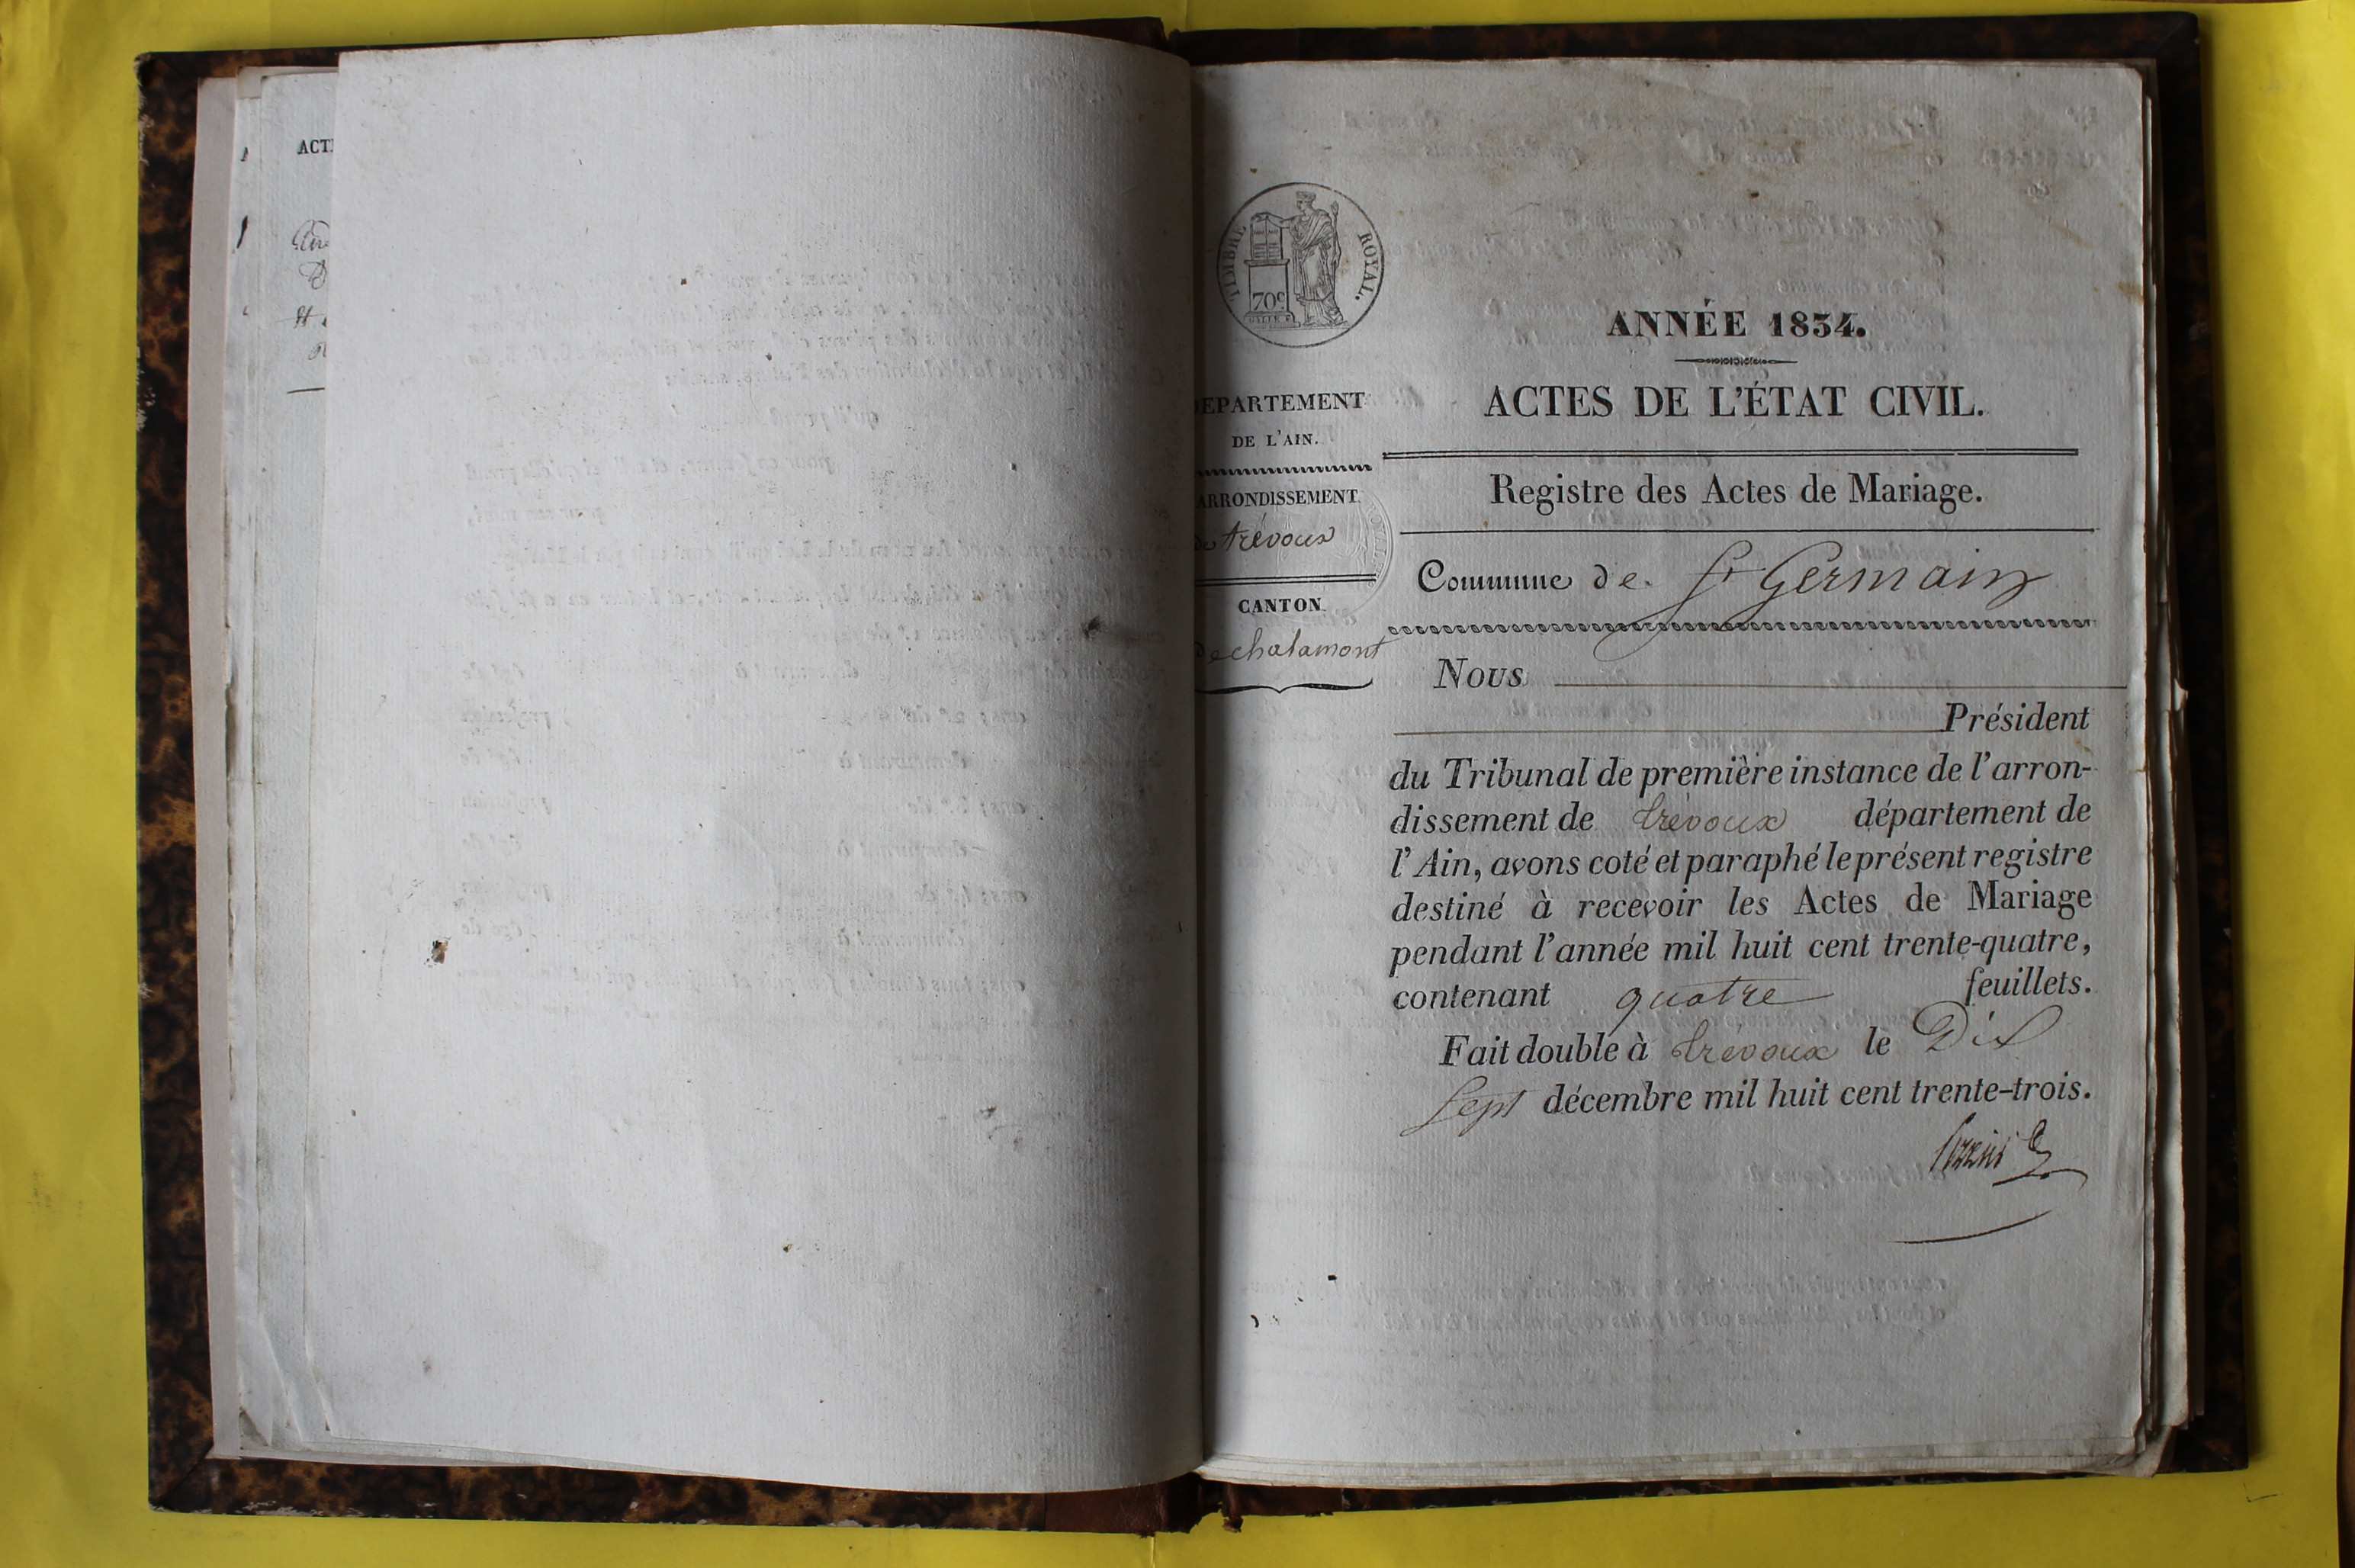 ACT
TIMBRE ROYAL.
70c
ANNÉE 1834.
ACTES DE L'ÉTAT CIVIL.
EPARTEMENT
DE L'AIN.
ARRONDISSEMENT
de trévoux
CANTON
Dechalamont
Registre des Actes de Mariage.
Commune de St Germain
Nous
Président
du Tribunal de première instance de l'arron-
dissement de trévoux département de
l'Ain, avons coté et paraphé le présent registre
destiné à recevoir les Actes de Mariage
pendant l'année mil huit cent trente-quatre,
contenant quatre feuillets.
Fait double à trévoux le Dix
Sept décembre mil huit cent trente-trois.